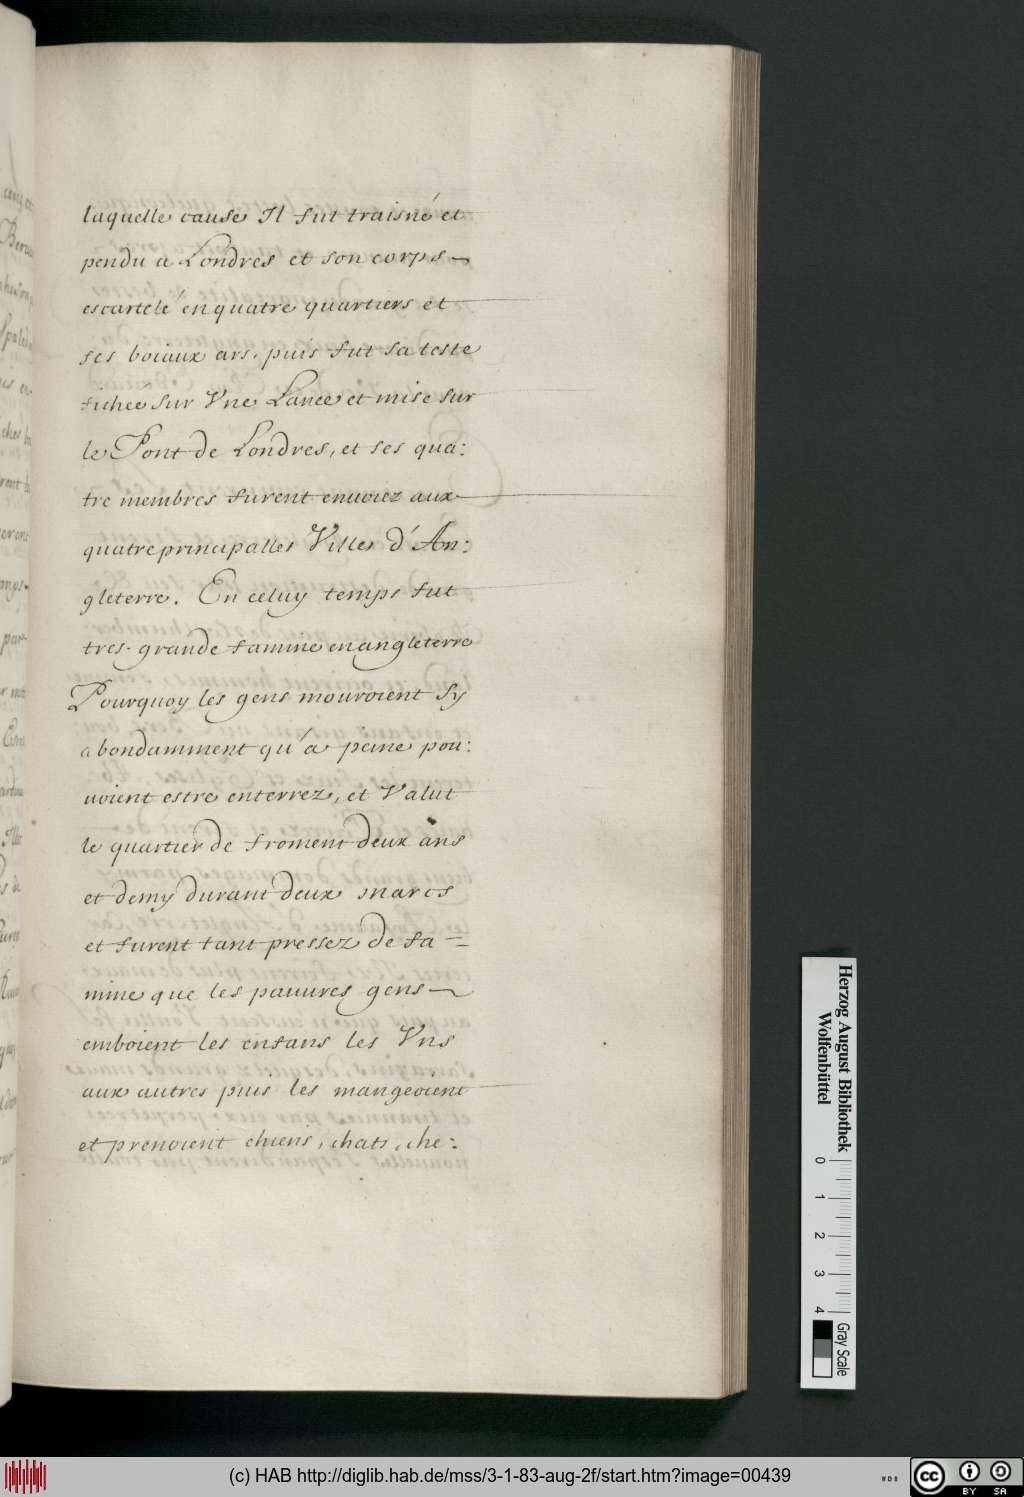 laquelle cause Il fut traisné et
pendu a Londres et son corps
escartelé en quatre quartiers et
ses boiaux ars. puis fut sa teste
fichee sur Vne Lance et mise sur
le Pont de Londres, et ses qua:
tre membres furent enuoiez aux
quatre principalles Villes d'An:
gleterre. En celuy temps fut
tres-grande famine en angleterre
Pourquoy les gens mouroient sy
abondamment qu'a peine pou:
uoient estre enterrez, et Valut
le quartier de froment deux ans
et demy durant deux marcs
et furent tant pressez de fa=
mine que les pauures gens
emboient les enfans les Vns
aux autres puis les mangeoient
et prenoient chiens, chats, che:
Herzog August Bibliothek
Wolfenbüttel
0 1 2 3 4
Gray Scale
(c) HAB http://diglib.hab.de/mss/3-1-83-aug-2f/start.htm?image=00439
cc BY SA